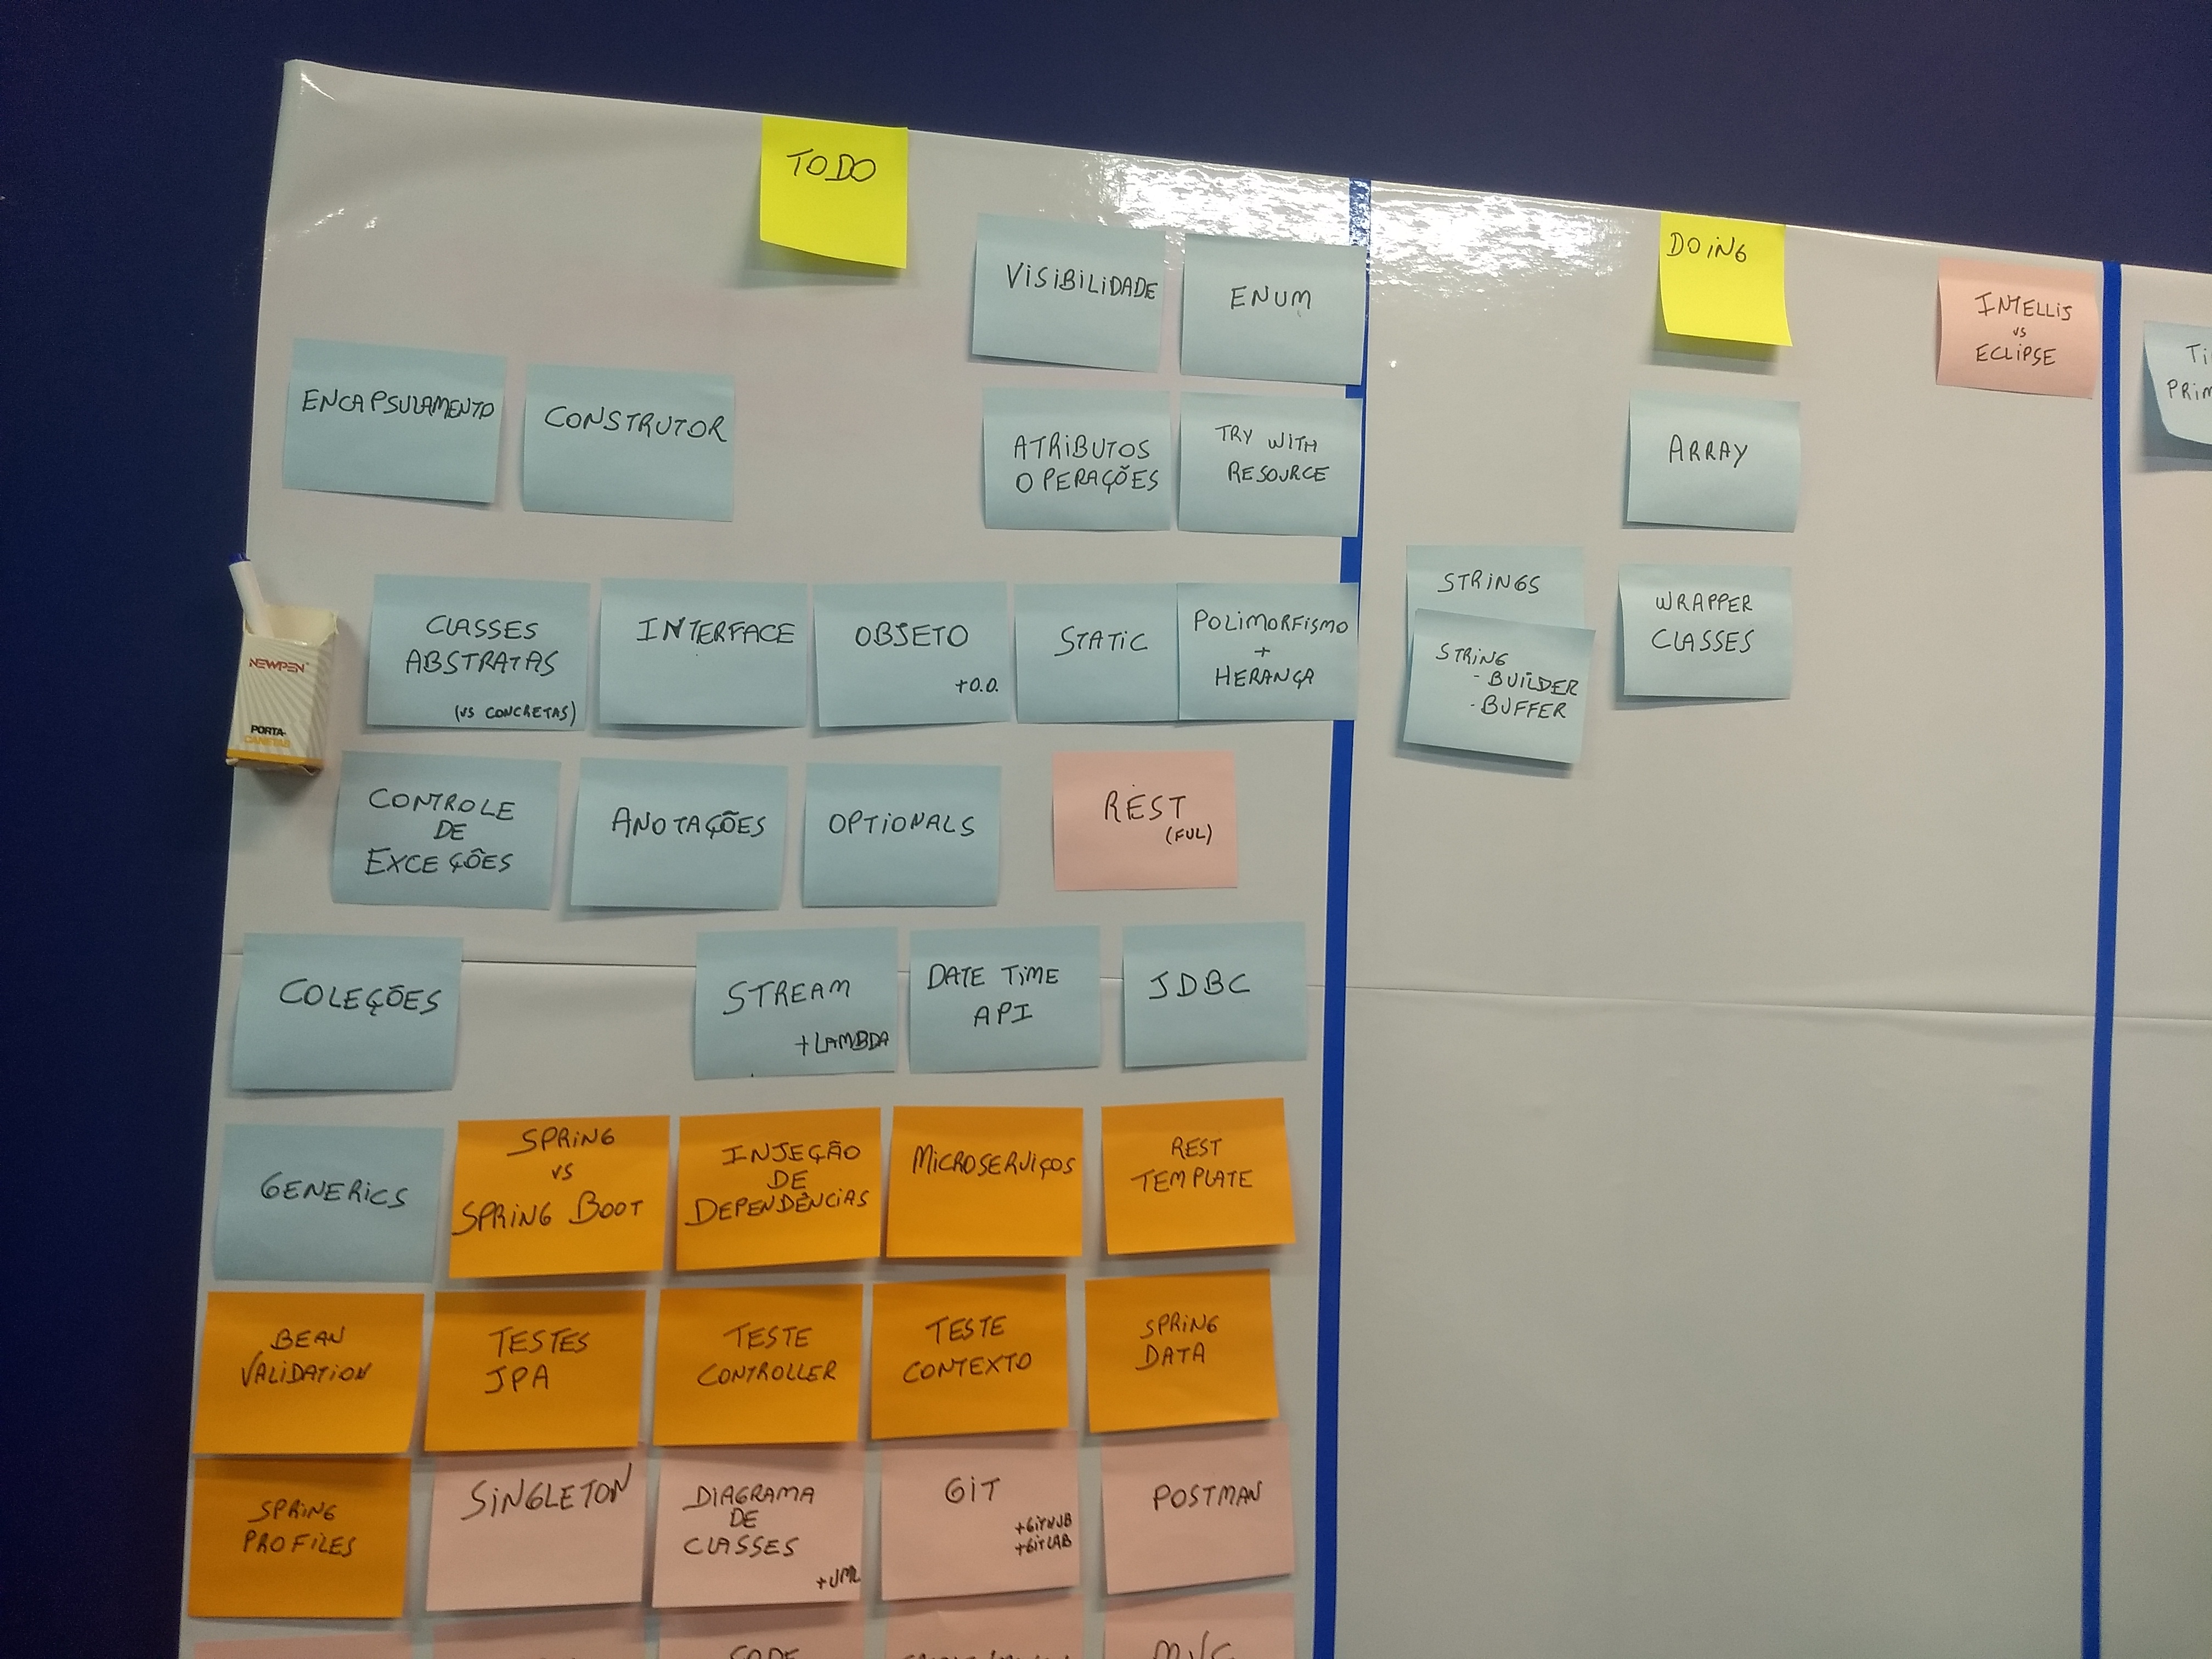 TODO
VISIBILIDADE
ENUM
ENCAPSULAMENTO
CONSTRUTOR
ATRIBUTOS
OPERAÇÕES
TRY WITH
RESOURCE
CLASSES
ABSTRATAS
(VS CONCRETAS)
INTERFACE
OBJETO
+O.O.
STATIC
POLIMORFISMO
+
HERANÇA
CONTROLE
DE
EXCEÇÕES
ANOTAÇÕES
OPTIONALS
REST
(FUL)
COLEÇÕES
STREAM
+LAMBDA
DATE TIME
API
JDBC
GENERICS
SPRING
VS
SPRING BOOT
INJEÇÃO
DE
DEPENDÊNCIAS
MICROSERVIÇOS
REST
TEMPLATE
BEAN
VALIDATION
TESTES
JPA
TESTE
CONTROLLER
TESTE
CONTEXTO
SPRING
DATA
SPRING
PROFILES
SINGLETON
DIAGRAMA
DE
CLASSES
+UML
GIT
+GITHUB
+GITLAB
POSTMAN
CODE
MVC
NEWPEN
PORTA-
CANETAS
DOING
INTELLIJ
VS
ECLIPSE
ARRAY
STRINGS
STRING
- BUILDER
- BUFFER
WRAPPER
CLASSES